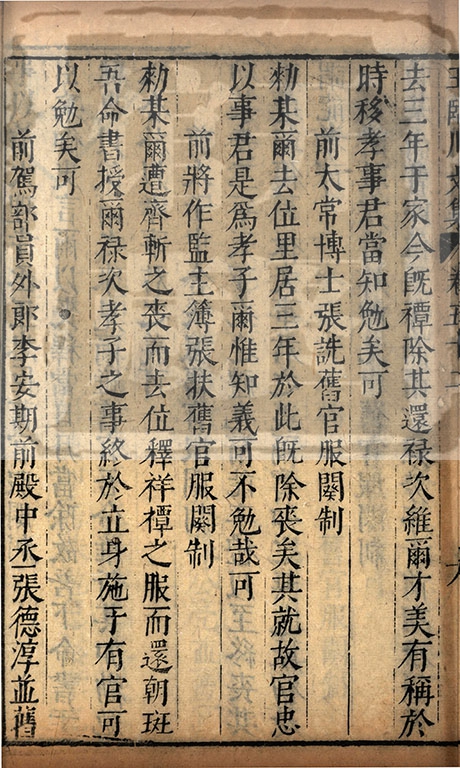 去三年于家今旣禫除其還祿次維爾才美有稱於
時移孝事君當知勉矣可
前太常博士張詵舊官服闋制
勑某爾去位里居三年於此旣除喪矣其就故官忠
以事君是爲孝子爾惟知義可不勉哉可
前將作監主簿張扶舊官服闋制
勑某爾遭齊斬之喪而去位釋祥禫之服而還朝班
吾命書授爾祿次孝子之事終於立身施于有官可
以勉矣可
前駕部員外郎李安期前殿中丞張德淳並舊